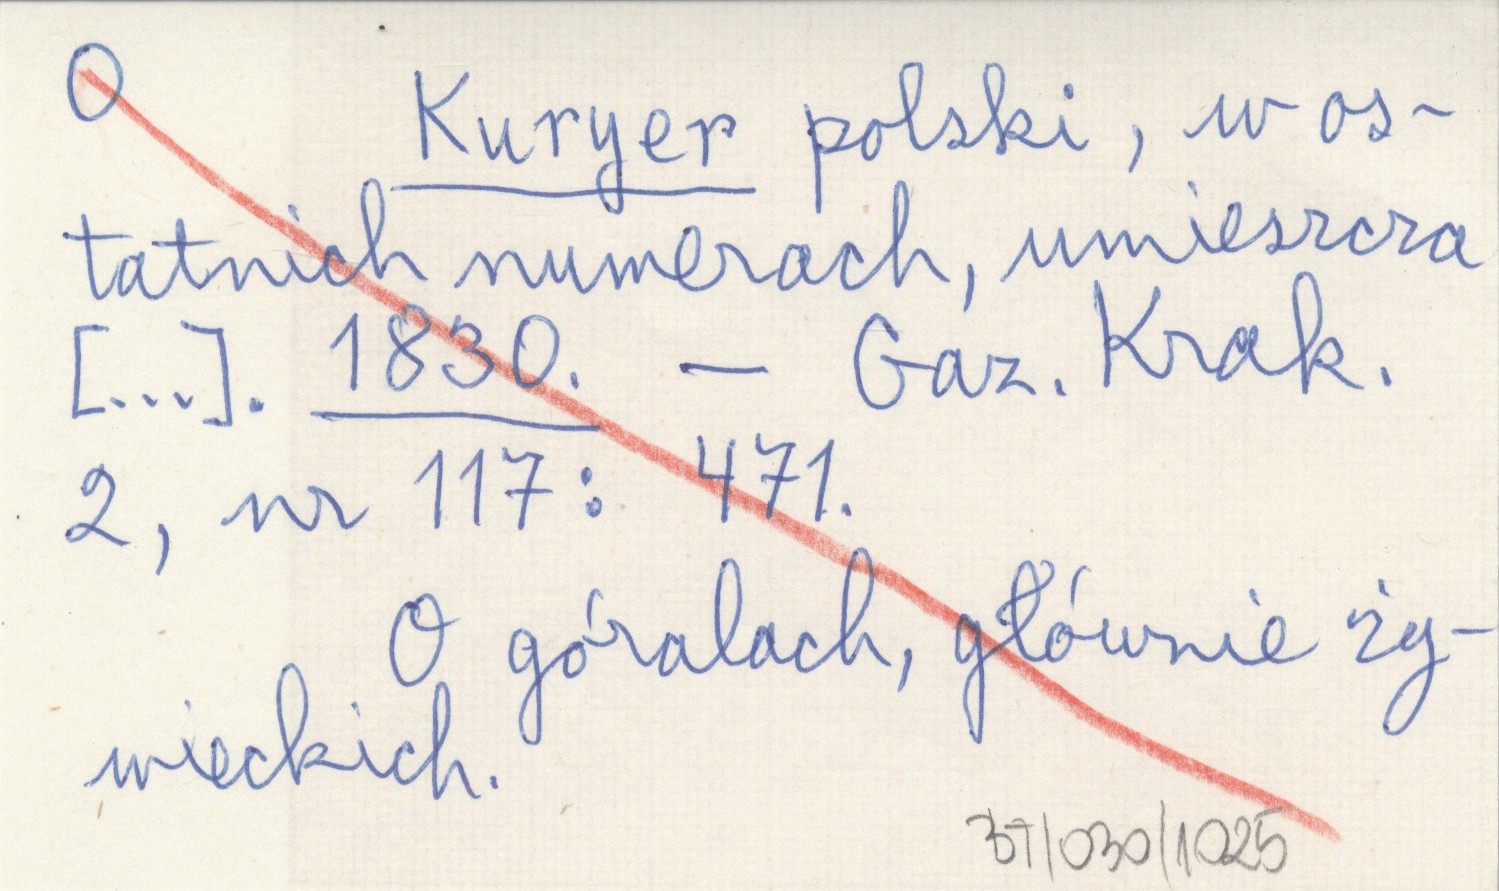 O
Kuryer polski, w os-
tatnich numerach, umieszcza
[...]. 1830. — Gaz. Krak.
2, nr 117: 471.
O góralach, głównie ży-
wieckich.
BT/030/1025